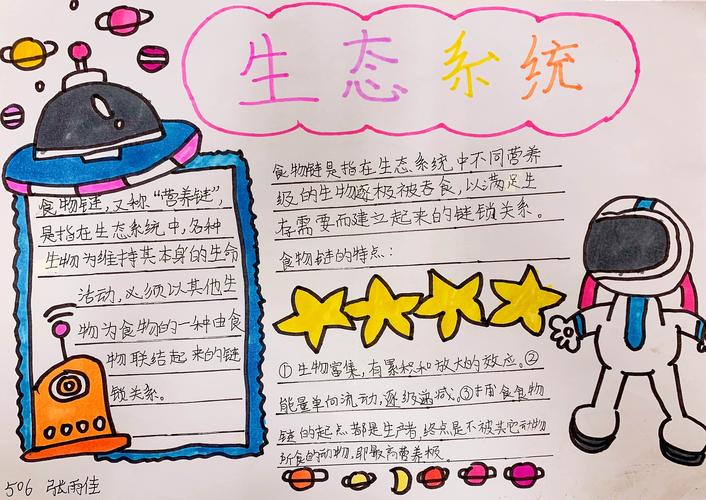 生态系统
食物链，又称“营养链”，
是指在生态系统中，各种
生物为维持其本身的生命
活动，必须以其他生
物为食物的一种由食
物联结起来的链
锁关系。
食物链是指在生态系统中不同营养
级的生物逐极被吞食，以满足生
存需要而建立起来的链锁关系。
食物链的特点：
①生物富集，有累积和放大的效应。②
能量单向流动，逐级递减。③捕食食物
链的起点都是生产者，终点是不被其它动物
所食的动物，即最高营养极。
506 张雨佳